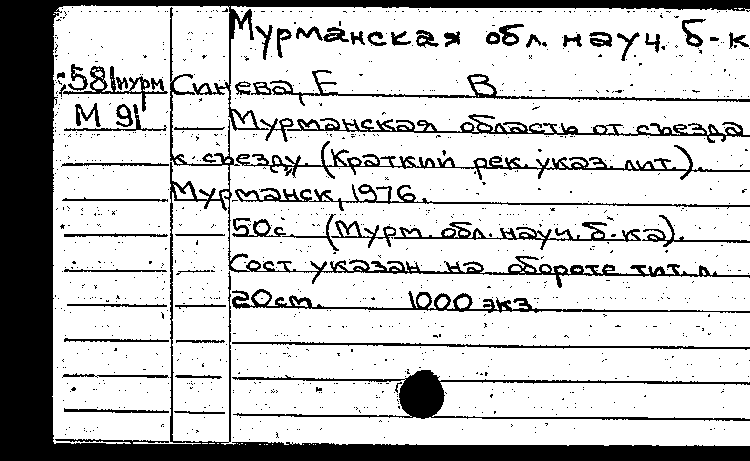 Мурманская обл. науч. б-к
:581мурм Синева, Е В
М 91 Мурманская область от съезда
к съезду. (Краткий рек. указ. лит.).
Мурманск, 1976.
50с. (Мурм. обл. науч. б-ка).
Сост. указан на обороте тит. л.
20см. 1000 экз.